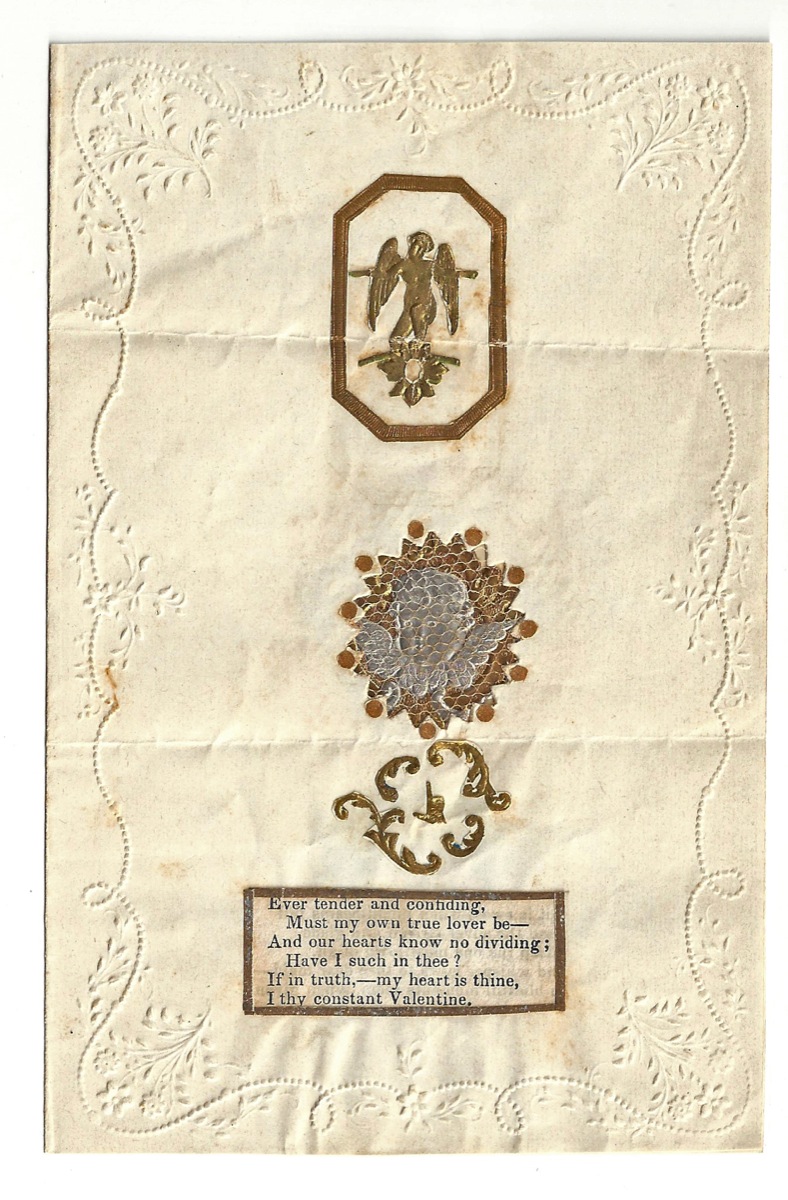 Ever tender and confiding,
Must my own true lover be—
And our hearts know no dividing;
Have I such in thee?
If in truth,—my heart is thine,
I thy constant Valentine.